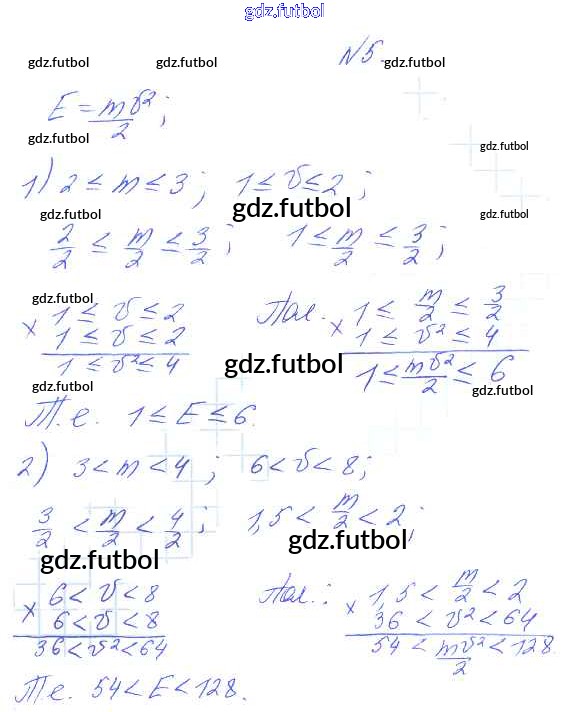 gdz.futbol
№5.
gdz.futbol gdz.futbol gdz.futbol
E = mv²/2;
gdz.futbol gdz.futbol
1) 2 ≤ m ≤ 3; 1 ≤ v ≤ 2;
gdz.futbol gdz.futbol gdz.futbol
2/2 ≤ m/2 ≤ 3/2; 1 ≤ m/2 ≤ 3/2;
gdz.futbol
× 1 ≤ v ≤ 2
1 ≤ v ≤ 2
1 ≤ v² ≤ 4
× 1 ≤ m/2 ≤ 3/2
1 ≤ v² ≤ 4
1 ≤ mv²/2 ≤ 6
gdz.futbol
gdz.futbol gdz.futbol
Т.е. 1 ≤ E ≤ 6.
2) 3 < m < 4; 6 < v < 8;
3/2 < m/2 < 4/2; 1,5 < m/2 < 2;
gdz.futbol gdz.futbol
× 6 < v < 8
6 < v < 8
36 < v² < 64
× 1,5 < m/2 < 2
36 < v² < 64
54 < mv²/2 < 128
Т.е. 54 < E < 128.